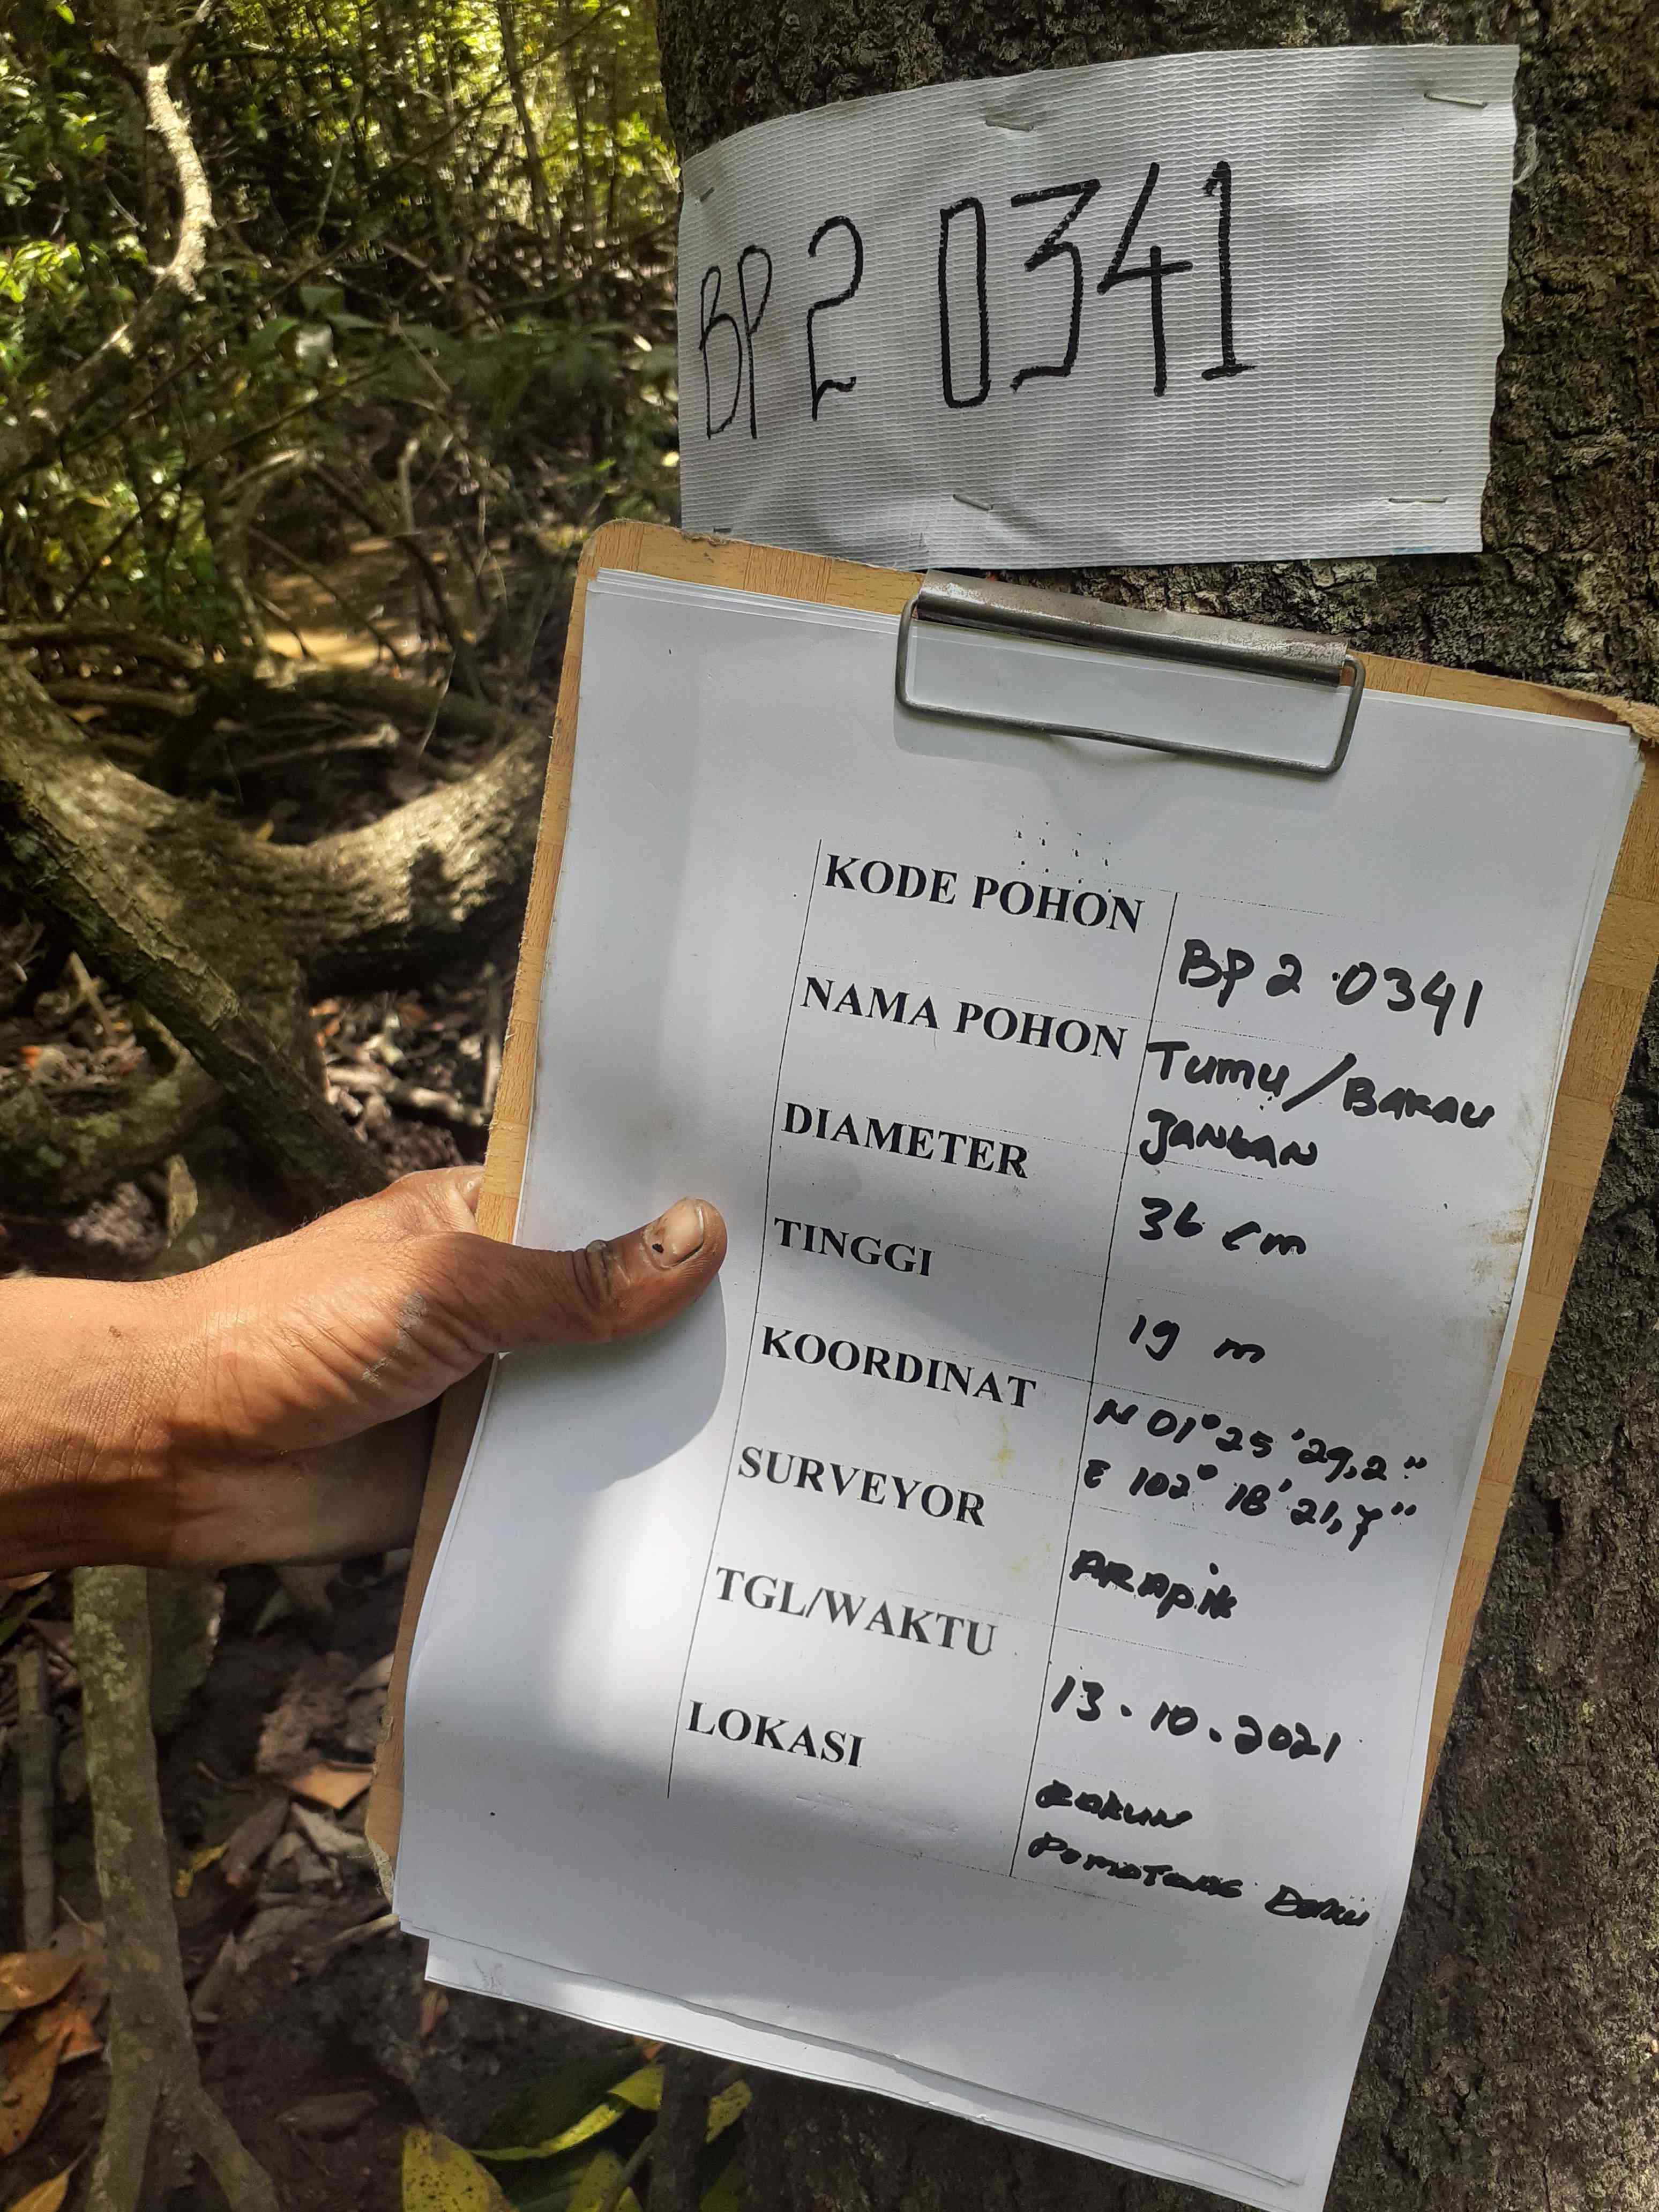 BP 2 0341
KODE POHON BP 2 0341
NAMA POHON TUMU/BAKAU
JANTAN
DIAMETER 36 cm
TINGGI 19 m
KOORDINAT N 01° 25 ' 29,2 "
E 102° 18' 21,7"
SURVEYOR ARAPIK
TGL/WAKTU 13.10.2021
LOKASI